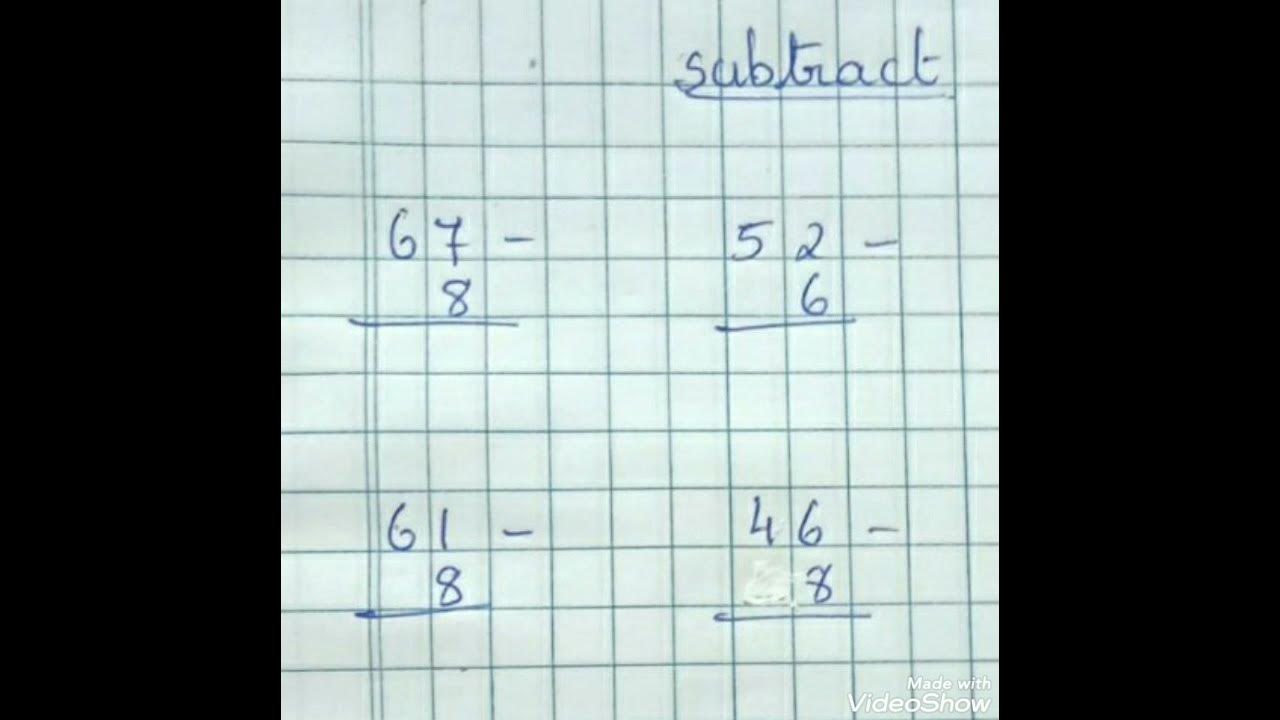 subtract
67 - 52 -
8 6
61 - 46 -
8 8
Made with
VideoShow